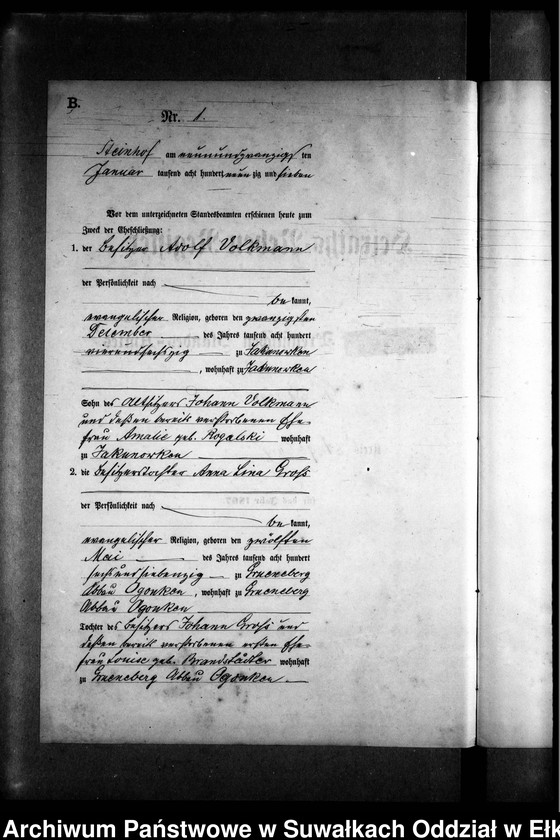 B.
Nr. 1.
Steinhof am neunundzwanzigs ten
Januar tausend acht hundert neun zig und sieben
Vor dem unterzeichneten Standesbeamten erschienen heute zum
Zweck der Eheschließung:
1. der Besitzer Adolf Volkmann
der Persönlichkeit nach
be kannt,
evangelischer Religion, geboren den zwanzigsten
Dezember des Jahres tausend acht hundert
vierundsechszig zu Jakunowken
, wohnhaft zu Jakunowken
Sohn des Altsitzers Johann Volkmann
und deßen bereits verstorbenen Ehe-
frau Amalie geb. Rogalski wohnhaft
zu Jakunowken
2. die Besitzerstochter Anna Lina Groß
der Persönlichkeit nach
be kannt,
evangelischer Religion, geboren den zwölften
Mai des Jahres tausend acht hundert
sechsundsiebenzig zu Grueneberg
Abbau Ogonken, wohnhaft zu Grueneberg
Abbau Ogonken
Tochter des Besitzers Johann Groß und
deßen bereits verstorbenen ersten Ehe-
frau Louise geb. Brandstädter wohnhaft
zu Grueneberg Abbau Ogonken.
Archiwum Państwowe w Suwałkach Oddział w Ełk